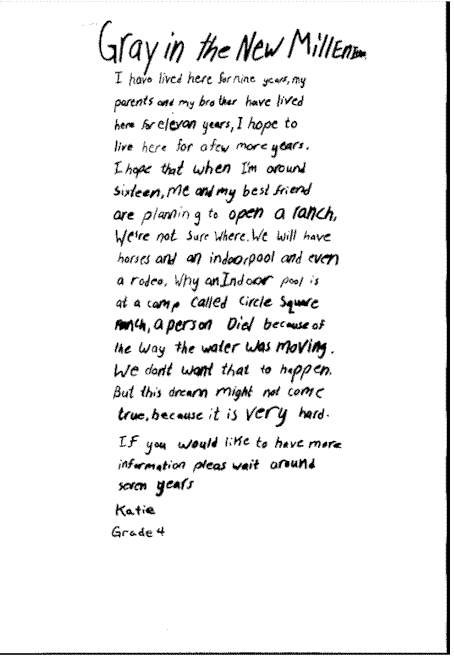 Gray in the New Millenium
I have lived here for nine years, my
parents and my brother have lived
here for elevan years, I hope to
live here for a few more years.
I hope that when I'm around
Sixteen, me and my best friend
are planning to open a ranch,
We're not sure where. We will have
horses and an indoorpool and even
a rodeo. Why an Indoor pool is
at a camp called Circle Square
ranch, a person Died because of
the way the water was moving.
We dont want that to happen.
But this dream might not come
true, because it is very hard.
If you would like to have more
information pleas wait around
seven years
Katie
Grade 4